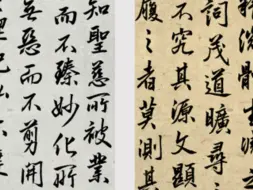 詞茂道曠尋之
不究其源文顯
履之者莫測其
知聖慈所被業
而不臻妙化所
無惡而不剪開